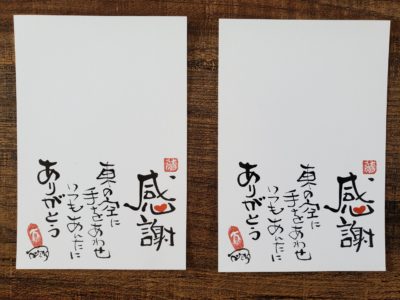 感謝
東の空に
手をあわせ
いつもあなたに
ありがとう
感謝
東の空に
手をあわせ
いつもあなたに
ありがとう